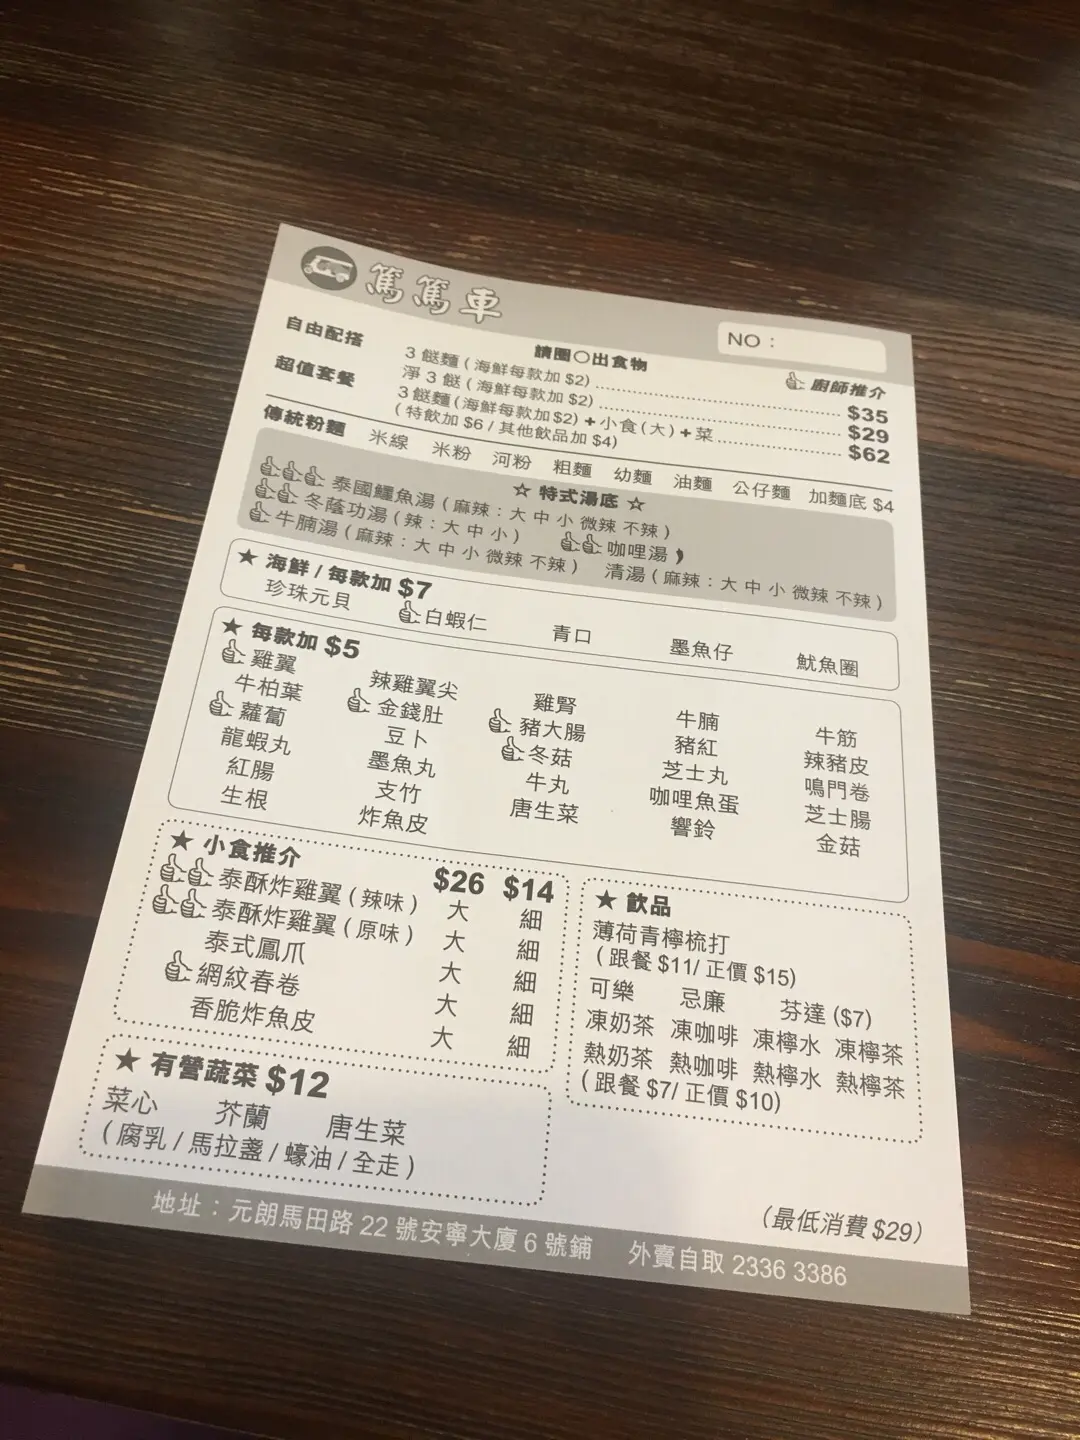 篤篤車
NO：
請圈○出食物
廚師推介
自由配搭
3 餸麵 ( 海鮮每款加 $2) $35
淨 3 餸 ( 海鮮每款加 $2) $29
超值套餐
3 餸麵 ( 海鮮每款加 $2) + 小食 ( 大 ) + 菜 $62
( 特飲加 $6 / 其他飲品加 $4)
傳統粉麵 米線 米粉 河粉 粗麵 幼麵 油麵 公仔麵 加麵底 $4
☆ 特式湯底 ☆
泰國鱷魚湯 ( 麻辣：大 中 小 微辣 不辣 )
冬蔭功湯 ( 辣：大 中 小 ) 咖喱湯
牛腩湯 ( 麻辣：大 中 小 微辣 不辣 ) 清湯 ( 麻辣：大 中 小 微辣 不辣 )
★ 海鮮 / 每款加 $7
珍珠元貝 白蝦仁 青口 墨魚仔 魷魚圈
★ 每款加 $5
雞翼 辣雞翼尖 雞腎 牛腩 牛筋
牛柏葉 金錢肚 豬大腸 豬紅 辣豬皮
蘿蔔 豆卜 冬菇 芝士丸 鳴門卷
龍蝦丸 墨魚丸 牛丸 咖哩魚蛋 芝士腸
紅腸 支竹 唐生菜 響鈴 金菇
生根 炸魚皮
★ 小食推介 $26 $14
泰酥炸雞翼 ( 辣味 ) 大 細
泰酥炸雞翼 ( 原味 ) 大 細
泰式鳳爪 大 細
網紋春卷 大 細
香脆炸魚皮 大 細
★ 飲品
薄荷青檸梳打
( 跟餐 $11/ 正價 $15)
可樂 忌廉 芬達 ($7)
凍奶茶 凍咖啡 凍檸水 凍檸茶
熱奶茶 熱咖啡 熱檸水 熱檸茶
( 跟餐 $7/ 正價 $10)
★ 有營蔬菜 $12
菜心 芥蘭 唐生菜
( 腐乳 / 馬拉盞 / 蠔油 / 全走 )
(最低消費 $29)
地址：元朗馬田路 22 號安寧大廈 6 號鋪 外賣自取 2336 3386